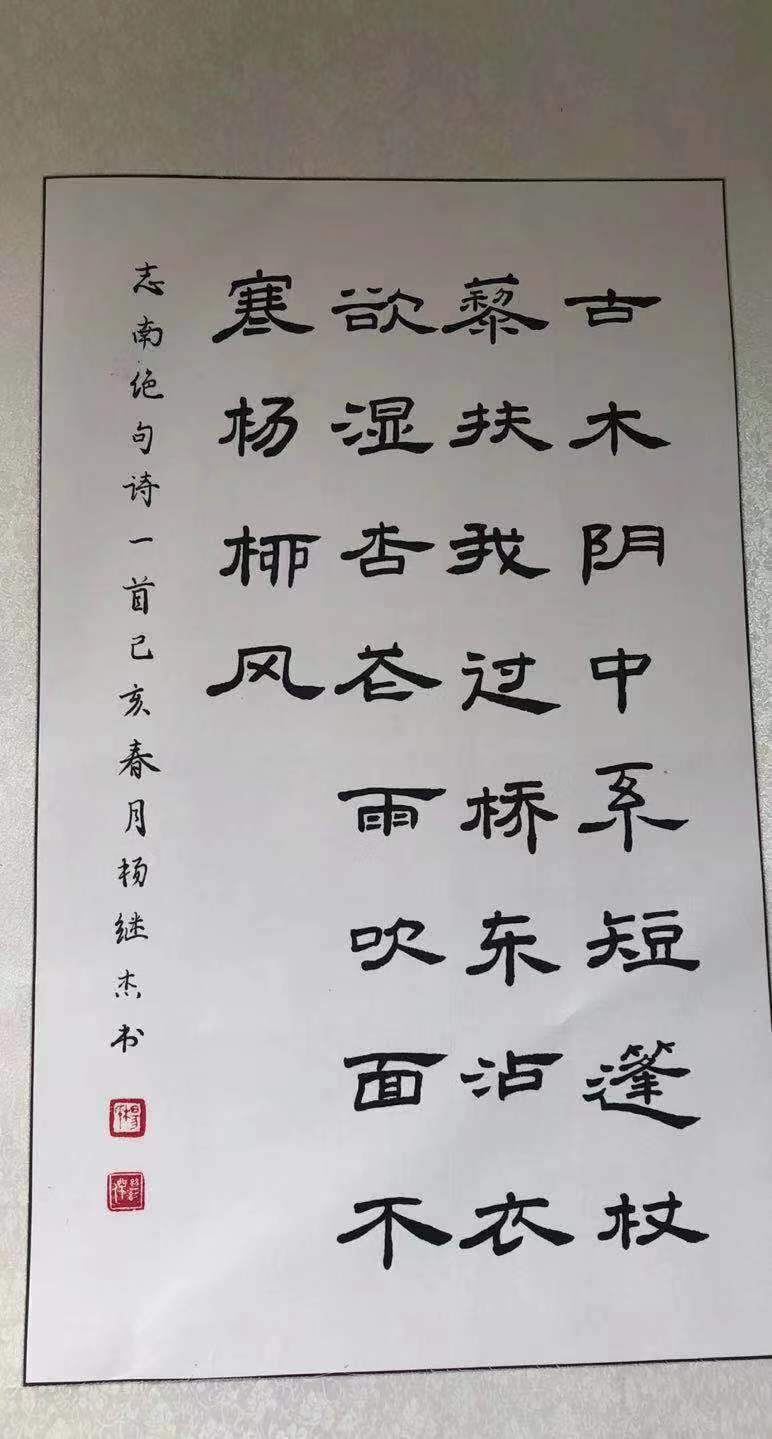 古木阴中系短篷杖
藜扶我过桥东沾衣
欲湿杏花雨吹面不
寒杨柳风
志南绝句诗一首己亥春月杨继杰书